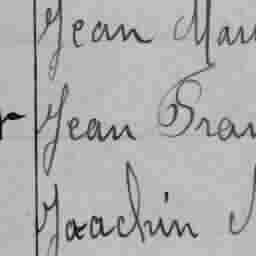 Jean Mar
Jean Fran
Joachin